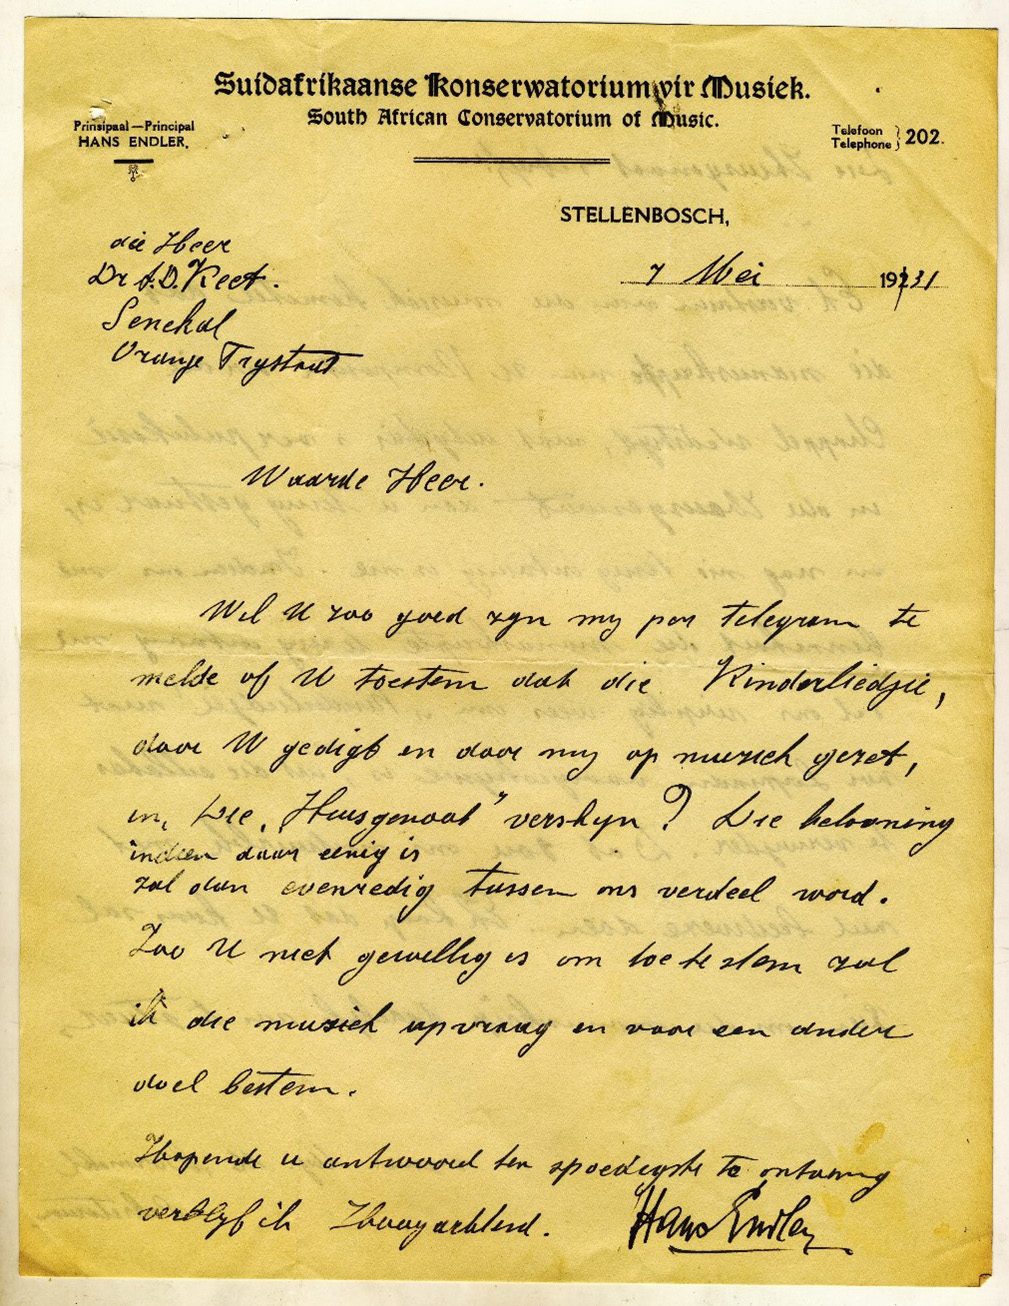 Suidafrikaanse Konserwatorium vir Musiek.
South African Conservatorium of Music.
Prinsipaal—Principal
HANS ENDLER.
Telefoon
Telephone } 202.
STELLENBOSCH,
7 Mei 1931
die Heer
Dr A.D. Keet.
Senekal
Oranje Vrystaat
Waarde Heer.
Wil U zoo goed zyn my par telegram te
melde of U toestem dat die Kinderliedjie,
door U gedigt en door my op muziek gezet,
in, Die "Huisgenoot" verskyn? Die belooning
indien daar eenig is
zal dan evenredig tussen ons verdeel word.
Zoo U niet gewillig is om toe te stem zal
ik die muziek opvraag en voor een ander
doel bestem.
Hopende u antwoord ten spoedigste te ontvang
verblyf ik Hoogachtend. Hans Endler